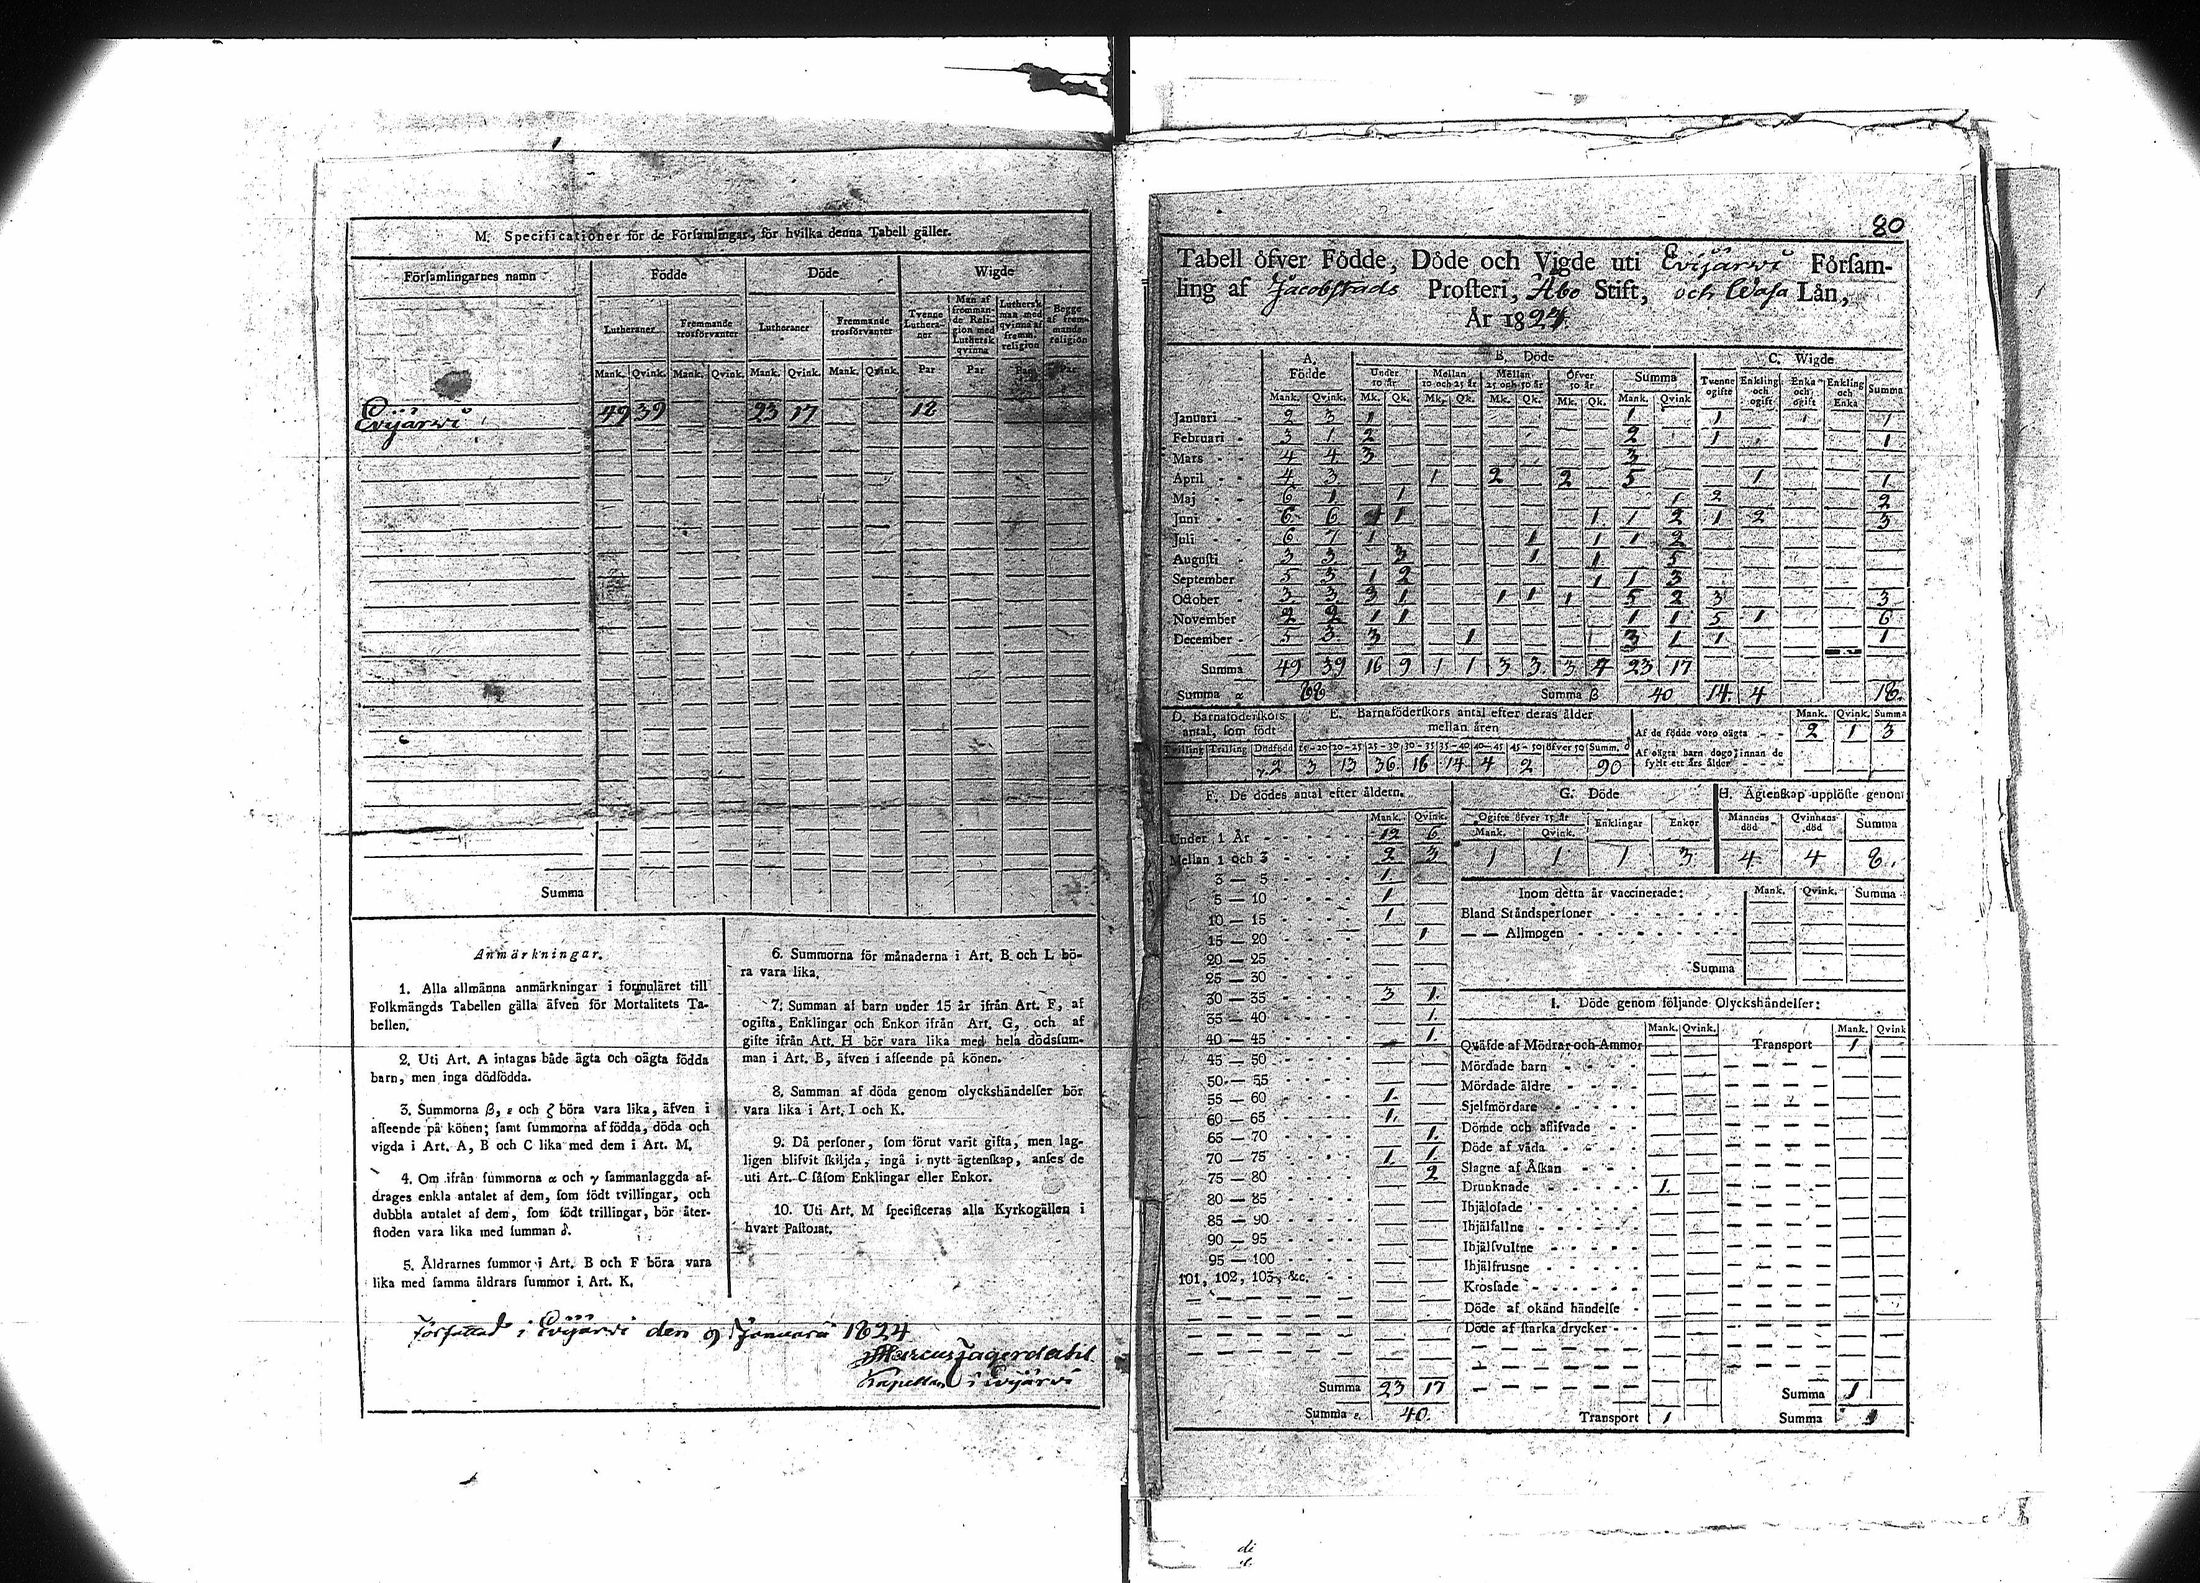 M. Specificationer för de Församlingar, för hvilka denna Tabell gäller.
Församlingarnes namn Födde Döde Wigde
Lutheraner Fremmande trosförvanter Lutheraner Fremmande trosförvanter Tvenne Lutheraner Man af fremmande Religion med Luthersk qvinna Luthersk man med qvinna af fremm. religion Begge af fremmande religion
Mank. Qvink. Mank. Qvink. Mank. Qvink. Mank. Qvink. Par Par Par Par
Evijärwi 49 39 23 17 18
Summa
Anmärkningar.
1. Alla allmänna anmärkningar i formuläret till
Folkmängds Tabellen gälla äfven för Mortalitets Ta-
bellen.
2. Uti Art. A intagas både ägta och oägta födda
barn, men inga dödfödda.
3. Summorna β, ε och ζ böra vara lika, äfven i
afseende på könen; samt summorna af födda, döda och
vigda i Art. A, B och C lika med dem i Art. M.
4. Om ifrån summorna α och γ sammanlaggda af-
drages enkla antalet af dem, som födt tvillingar, och
dubbla antalet af dem, som födt trillingar, bör åter-
stoden vara lika med summan δ.
5. Åldrarnes summor i Art. B och F böra vara
lika med samma åldrars summor i Art. K.
6. Summorna för månaderna i Art. B och L bö-
ra vara lika.
7. Summan af barn under 15 år ifrån Art. F, af
ogifta, Enklingar och Enkor ifrån Art. G, och af
gifte ifrån Art. H bör vara lika med hela dödssum-
man i Art. B, äfven i afseende på könen.
8. Summan af döda genom olyckshändelser bör
vara lika i Art. I och K.
9. Då personer, som förut varit gifta, men lag-
ligen blifvit skiljda, ingå i nytt ägtenskap, anses de
uti Art. C såsom Enklingar eller Enkor.
10. Uti Art. M specificeras alla Kyrkogällen i
hvart Pastorat.
Författad i Evijärwi den 9 Januarii 1824
Marcus Fagerdahl
Kapellan i Evijärwi
80
Tabell öfver Födde, Döde och Vigde uti Evijärwi Försam-
ling af Jacobstads Prosteri, Åbo Stift, och Wasa Län,
År 182
A. Födde B. Döde C. Wigde
Under 10 år Mellan 10 och 25 år Mellan 25 och 50 år Öfver 50 år Summa Tvenne ogifte Enkling och ogift Enka och ogift Enkling och Enka Summa
Mank. Qvink. Mk. Qk. Mk. Qk. Mk. Qk. Mk. Qk. Mank. Qvink
Januari 2 3 1 1 1 1
Februari 3 1 2 2 1 1
Mars 4 4 3 3
April 4 3 1 2 2 5 1 1
Maj 6 1 1 1 2 2
Juni 6 6 1 1 1 2 1 2 3
Juli 6 7 1 1 1 1 2
Augusti 3 3 3 1 1 5
September 5 3 1 2 1 1 3
October 3 3 3 1 1 1 1 5 2 3 3
November 2 2 1 1 1 1 5 1 6
December 5 3 3 1 3 1 1 1
Summa 49 39 16 9 1 1 3 3 3 4 23 17
Summa α 88 Summa β 40 14 4 18
D. Barnaföderskors antal, som födt E. Barnaföderskors antal efter deras ålder mellan åren
Dödfödd 15-20 20-25 25-30 30-35 35-40 40-45 45-50 öfver 50 Summ. δ
γ 2 3 13 36 16 14 4 2 90
Mank. Qvink. Summa
Af de födde voro oägta 2 1 3
Af oägta barn dogo innan de
fyllt ett års ålder
F. De dödes antal efter åldern.
Mank. Qvink.
Under 1 År 12 6
Mellan 1 och 3 2 3
3 — 5 1
5 — 10 1
10 — 15 1
15 — 20 1
20 — 25
25 — 30
30 — 35 3 1
35 — 40 1
40 — 45 1
45 — 50
50 — 55
55 — 60 1
60 — 65 1
65 — 70 1
70 — 75 1 1
75 — 80 2
80 — 85
85 — 90
90 — 95
95 — 100
101, 102, 103, &c.
Summa 23 17
Summa ε 40
G. Döde H. Ägtenskap upplöste genom
Ogifte öfver 15 år Enklingar Enkor Mannens död Qvinnans död Summa
Mank. Qvink.
1 1 1 3 4 4 8
Inom detta år vaccinerade: Mank. Qvink. Summa
Bland Ståndspersoner
— — Allmogen
Summa
I. Döde genom följande Olyckshändelser:
Mank. Qvink. Mank. Qvink
Qväfde af Mödrar och Ammor Transport 1
Mördade barn
Mördade äldre
Sjelfmördare
Dömde och aflifvade
Döde af våda
Slagne af Åskan
Drunknade 1
Ihjälösade
Ihjälfallne
Ihjälsvultne
Ihjälfrusne
Krossade
Döde af okänd händelse
Döde af starka drycker
Summa 1
Transport 1 Summa 1